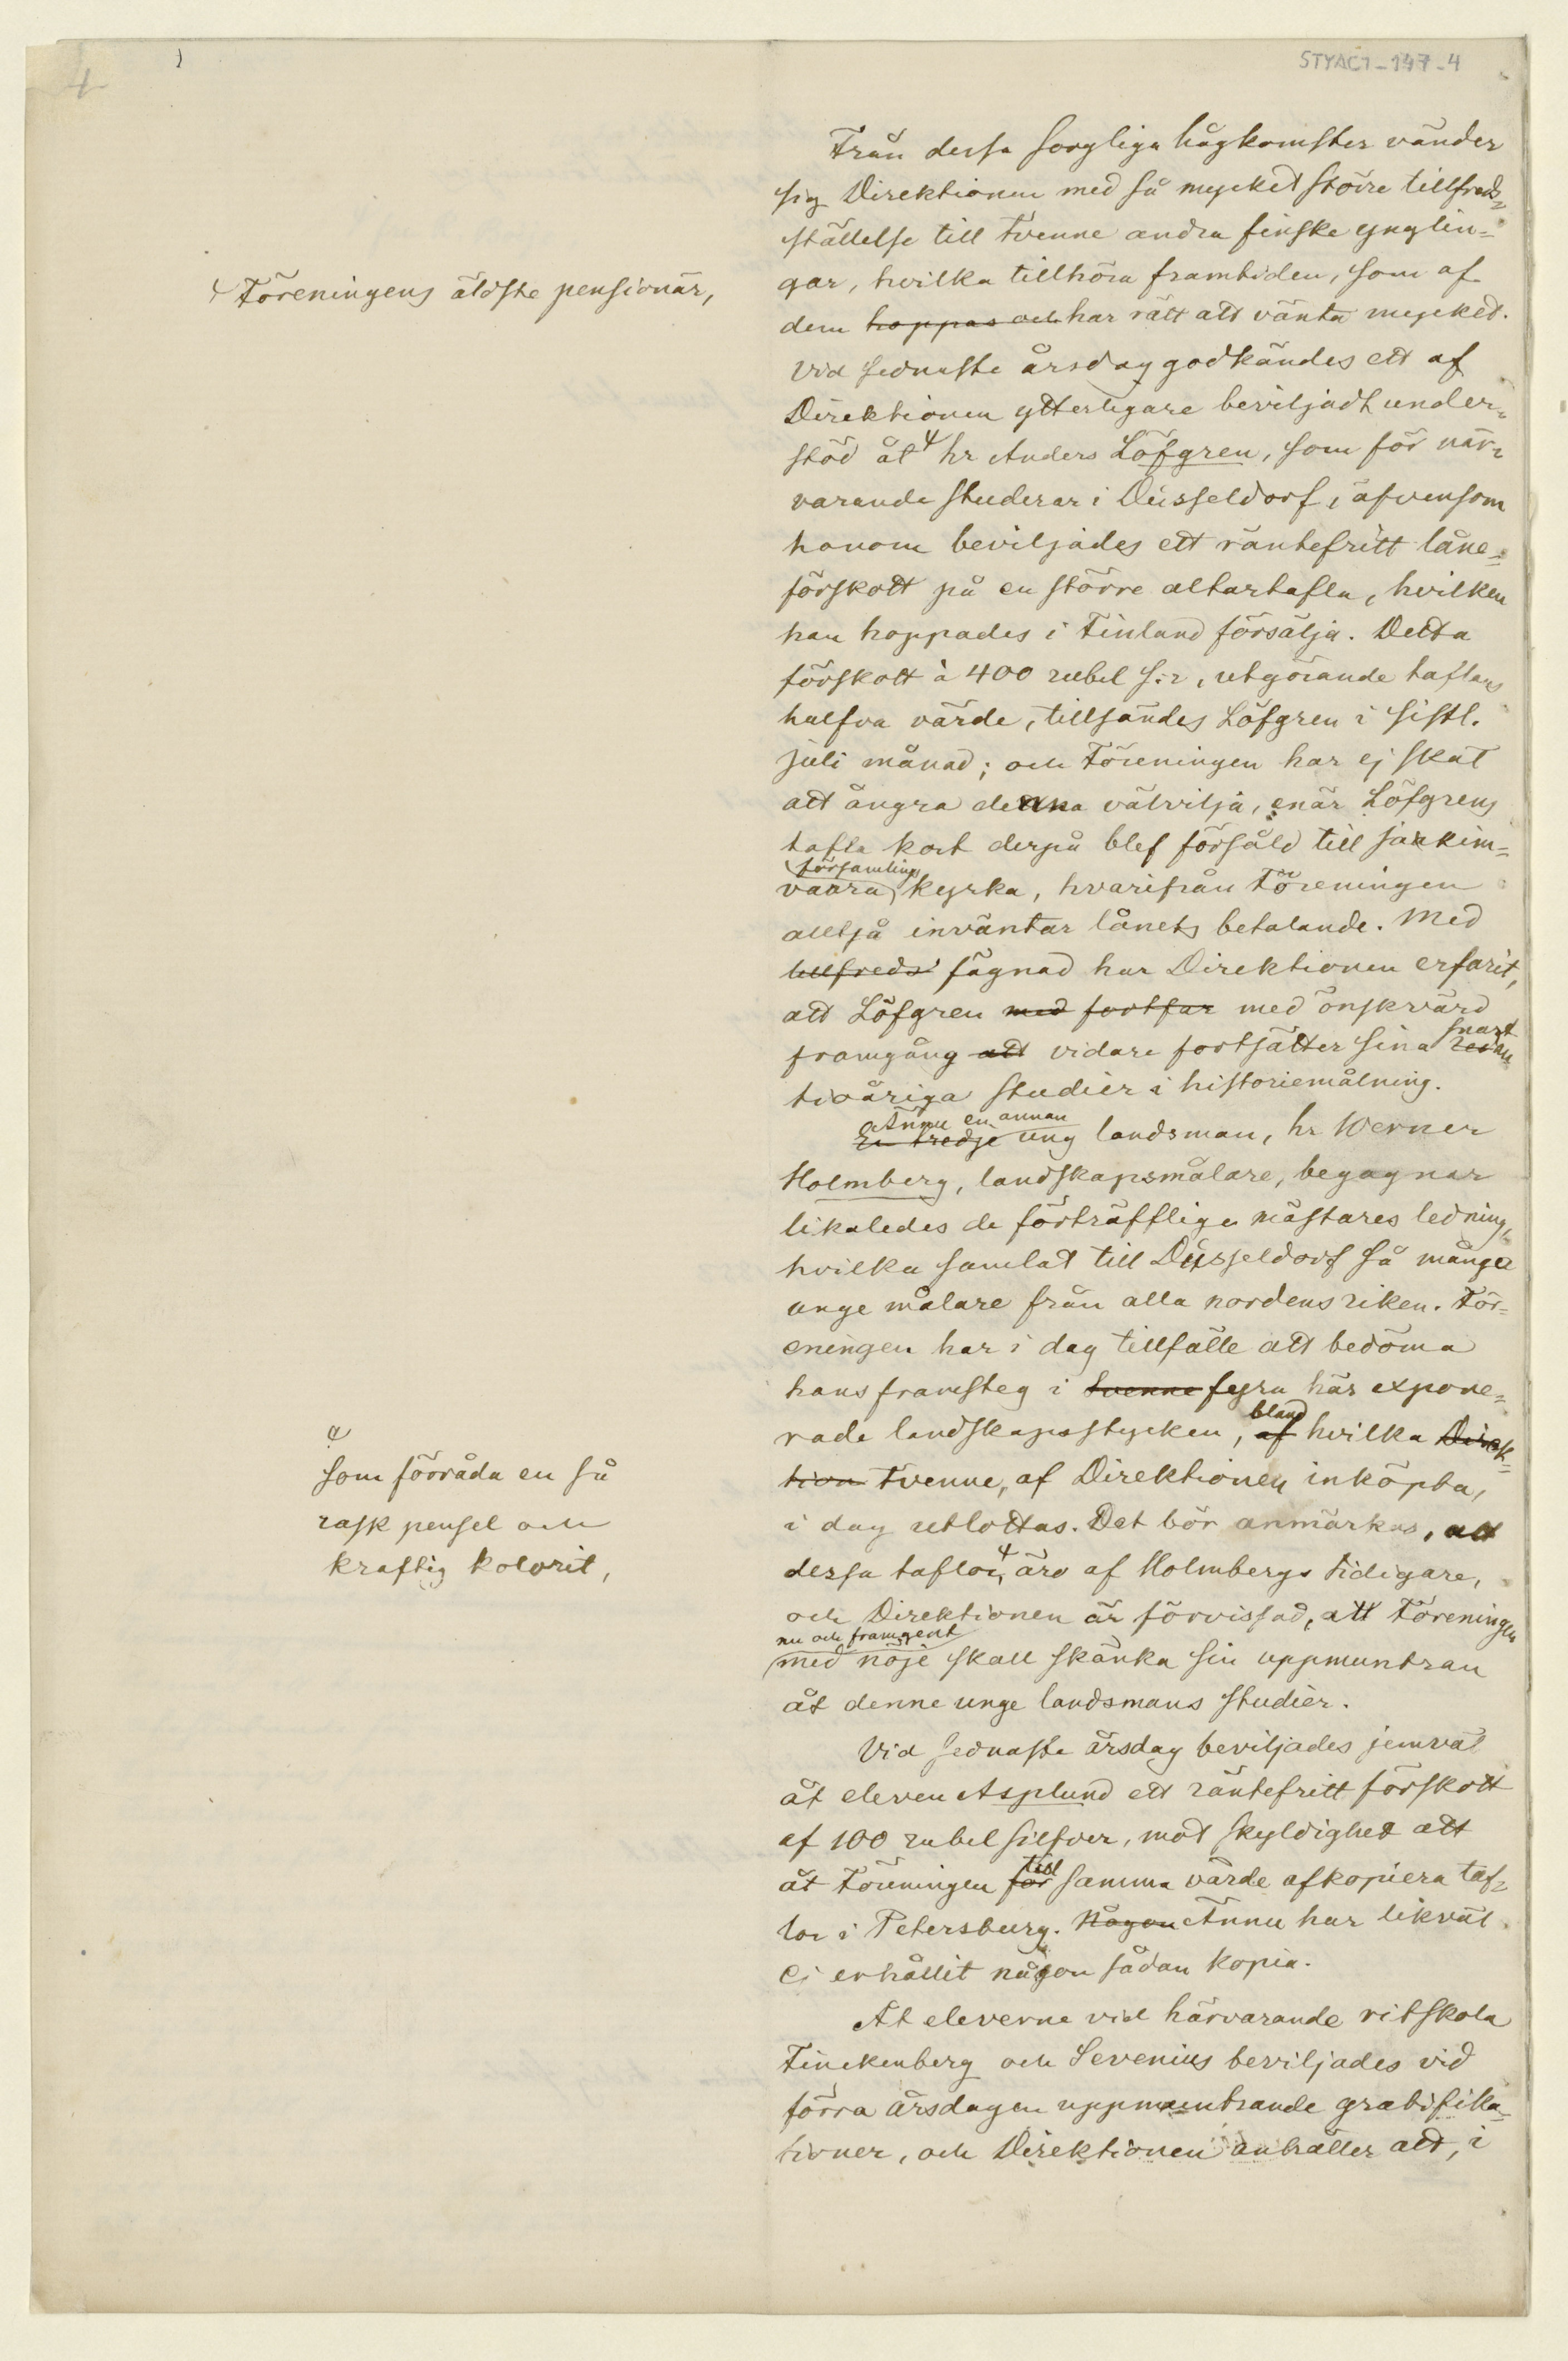 4
STYAC1-147-4
Från dessa sorgliga hågkomster vänder
sig Direktionen med så mycket större tillfreds-
ställelse till tvenne andra finske ynglin-
gar, hvilka tillhöra framtiden, som af
dem hoppas och har rätt att vänta mycket.
Vid sednaste årsdag godkändes ett af
Direktionen ytterligare beviljadt under-
stöd åt hr Anders Löfgren, som för när-
Föreningens äldste pensionär,
varande studerar i Düsseldorf, äfvensom
honom beviljades ett räntefritt låne-
förskott på en större altartafla, hvilken
han hoppades i Finland försälja. Detta
förskott à 400 rubel s:r, utgörande taflans
halfva värde, tillsändes Löfgren i sistl.
juli månad; och Föreningen har ej skäl
att ångra denna välvilja, enär Löfgrens
tafla kort derpå blef försåld till Jaakim-
församlings
vaara kyrka, hvarifrån Föreningen
alltså inväntar lånets betalande. Med
tillfreds fägnad har Direktionen erfarit,
att Löfgren med fortfar med önskvärd
snart
framgång att vidare fortsätter sina
tioåriga studier i historiemålning.
Ännu en annan
En tredje ung landsman, hr Werner
Holmberg, landskapsmålare, begagnar
likaledes de förträffliga mästares ledning,
hvilka samlat till Düsseldorf så många
unge målare från alla nordens riken. För-
eningen har i dag tillfälle att bedöma
hans framsteg i tvenne fyra här expone-
bland
rade landskapsstycken, af hvilka Direk-
tion tvenne, af Direktionen inköpta,
i dag utlottas. Det bör anmärkas, att
dessa taflor, äro af Holmbergs tidigare,
som förråda en så
rask pensel och
kraftig kolorit,
och Direktionen är förvissad, att Föreningen
nu och framgent
med nöje skall skänka sin uppmuntran
åt denne unge landsmans studier.
Vid sednaste årsdag beviljades jemväl
åt eleven Asplund ett räntefritt förskott
af 100 rubel silfver, mot skyldighet att
till
åt Föreningen för samma värde afkopiera taf-
lor i Petersburg. Någon Ännu har likväl
ej erhållit någon sådan kopia.
Åt eleverne vid härvarande ritskola
Finckenberg och Sevenius beviljades vid
förra årsdagen uppmuntrande gratifika-
tioner, och Direktionen anhåller att, i